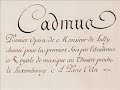 Cadmus
Premier Opera de Monsieur de Lully
chanté pour la premiere fois par l'Academie
Royale de musique au Theatre proche
le Luxembourg A Paris L'An